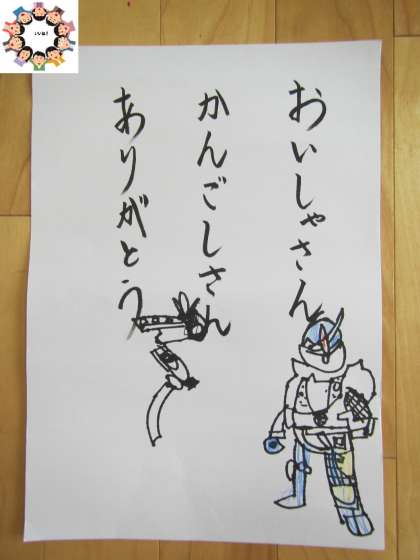 おいしゃさん
かんごしさん
ありがとう